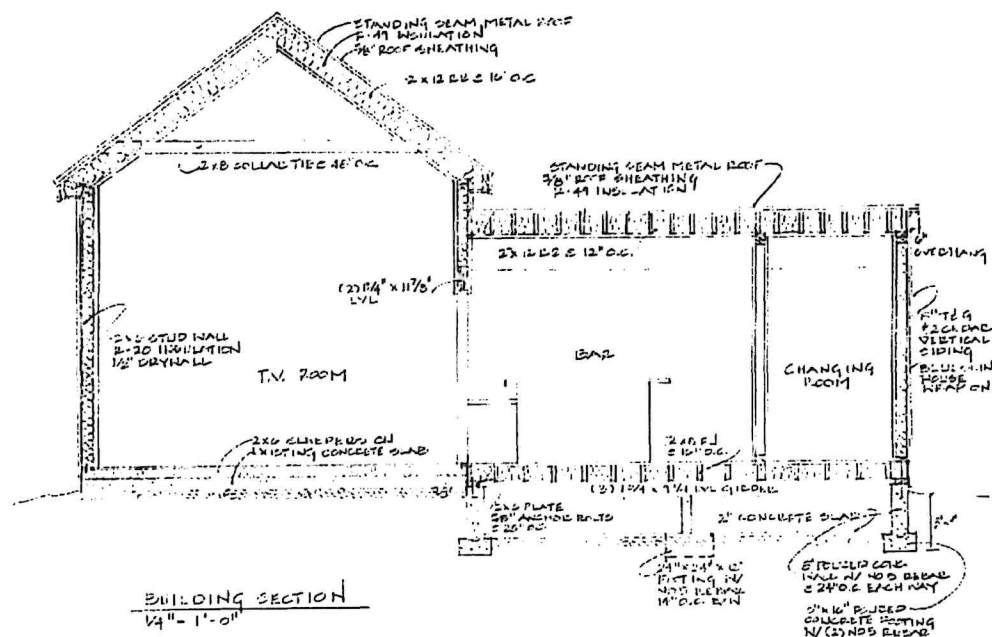 STANDING SEAM METAL ROOF
R-49 INSULATION
5/8" ROOF SHEATHING
2 x 12 RR @ 16" O.C.
2x8 COLLAR TIES 48" O.C.
STANDING SEAM METAL ROOF
5/8" ROOF SHEATHING
R-49 INSULATION
2 x 12 RR @ 12" O.C.
6"
OVERHANG
(2) 1 3/4" x 11 7/8"
LVL
2x6 STUD WALL
R-20 INSULATION
1/2" DRYWALL
T.V. ROOM
BAR
CHANGING
ROOM
T&G
CEDAR
VERTICAL
SIDING
HOUSE
WRAP ON
2x6 SLEEPERS ON
EXISTING CONCRETE SLAB
2x8 FJ
@ 16" O.C.
(3) 1 3/4 x 9 1/4 LVL GIRDER
2x6 PLATE
5/8" ANCHOR BOLTS
O.C.
2" CONCRETE SLAB
24" x 24" x 12"
FOOTING W/
NO 5 REBAR
O.C. E/W
8" POURED CONC.
WALL W/ NO 5 REBAR
@ 24" O.C. EACH WAY
8" x 16" POURED
CONCRETE FOOTING
W/ (2) NO 5 REBAR
BUILDING SECTION
1/4" - 1'-0"